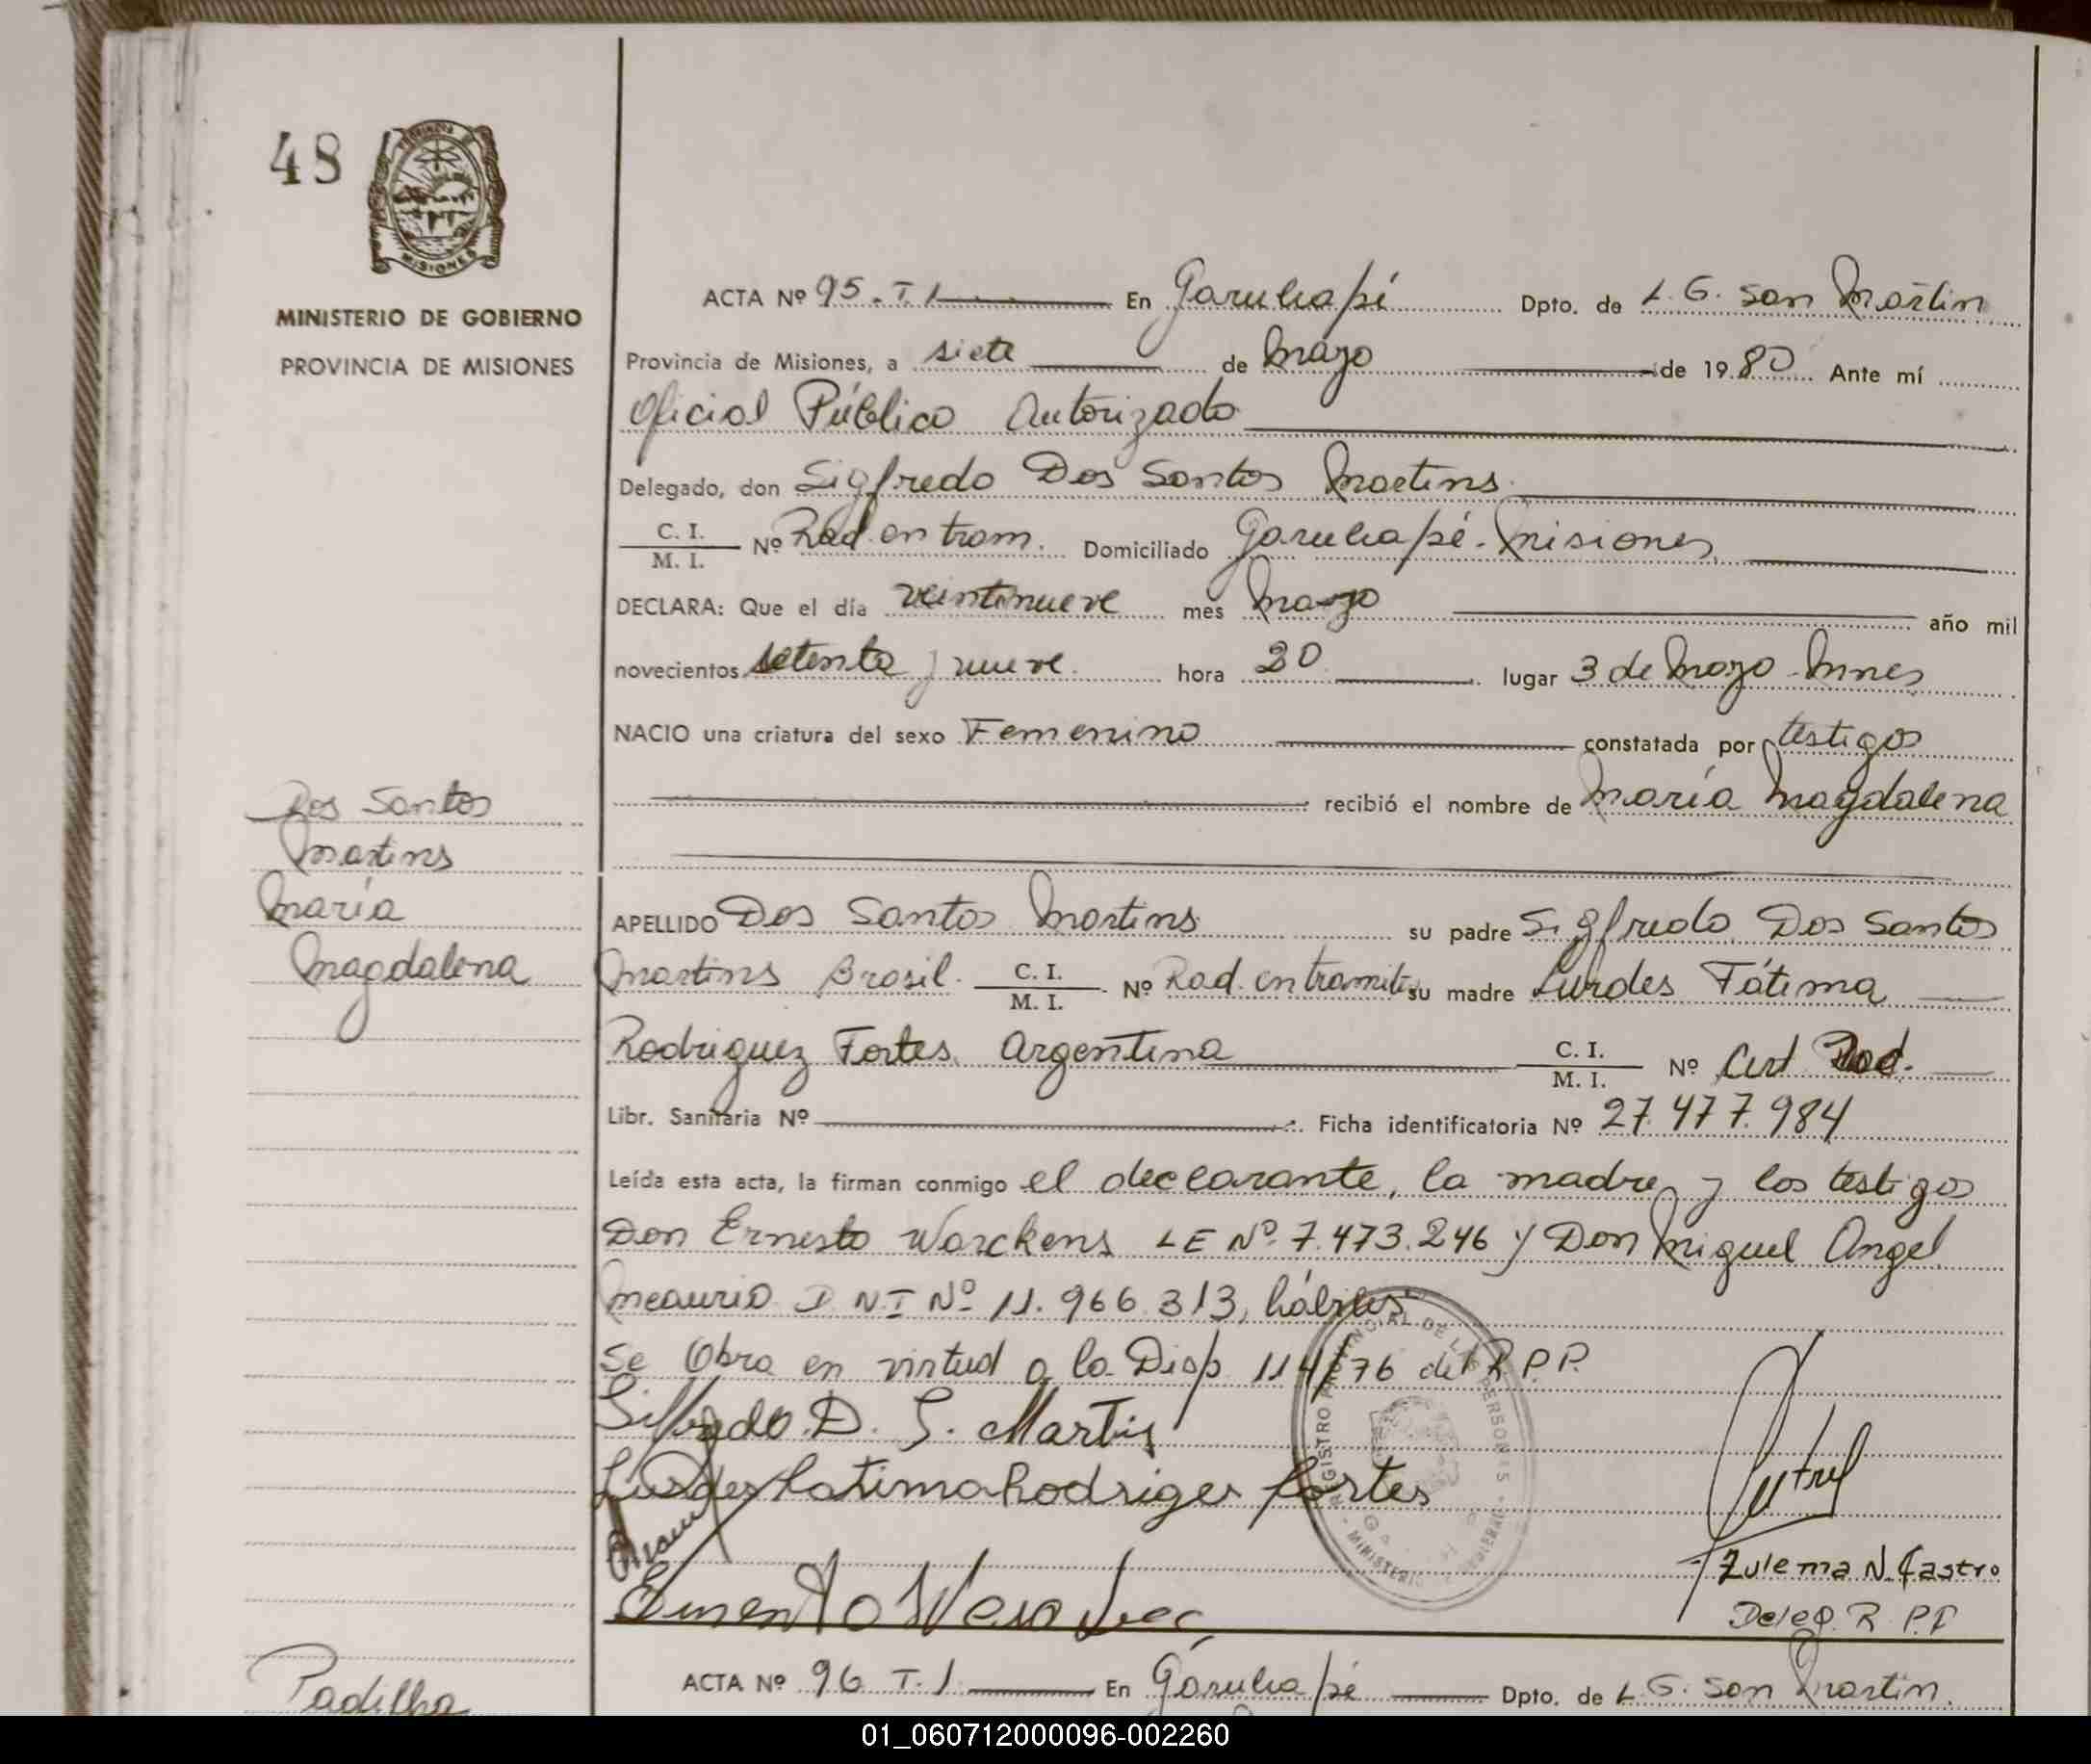 48
MISIONES
MINISTERIO DE GOBIERNO
PROVINCIA DE MISIONES
ACTA Nº 95. T. 1 En Garuhapé Dpto. de L. G. San Martin
Provincia de Misiones, a siete de Mayo de 1980 Ante mí
Oficial Público Autorizado
Delegado, don Sigfredo Dos Santos Martins
C. I.
M. I. Nº Rad. en tram. Domiciliado Garuhapé - Misiones
DECLARA: Que el día veintinueve mes Mayo año mil
novecientos setenta y nueve hora 20 lugar 3 de Mayo - Mnes
NACIO una criatura del sexo Femenino constatada por testigos
recibió el nombre de María Magdalena
Dos Santos
Martins
María
Magdalena
APELLIDO Dos Santos Martins su padre Sigfredo Dos Santos
Martins Brasil. C. I.
M. I. Nº Rad. en tramite su madre Lurdes Fátima
Rodriguez Fortes Argentina C. I.
M. I. Nº Cert Rad.
Libr. Sanitaria Nº Ficha identificatoria Nº 27.477.984
Leída esta acta, la firman conmigo el declarante, la madre y los testigos
Don Ernesto Warckens LE Nº 7.473.246 y Don Miguel Angel
Meaurio D N I Nº 11.966.313, hábiles
Se Obra en virtud a la Disp 114/76 del R.P.P.
D. S. Martis
Lurdes Fatima Rodriges fortes
REGISTRO PROVINCIAL DE LAS PERSONAS
MINISTERIO
Zulema N. Castro
Deleg. R. P. P
Padilha
ACTA Nº 96 T. 1 En Garuhapé Dpto. de L. G. San Martin.
01_060712000096-002260